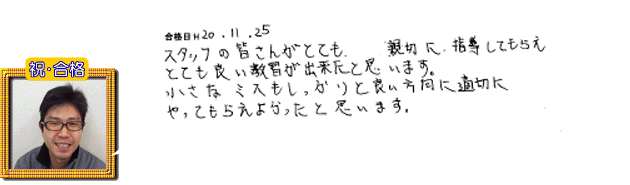 祝・合格
合格日 H20.11.25
スタッフの皆さんがとても、親切に、指導してもらえ
とても良い教習が出来たと思います。
小さな ミスもしっかりと良い方向に適切に
やってもらえよかったと思います。